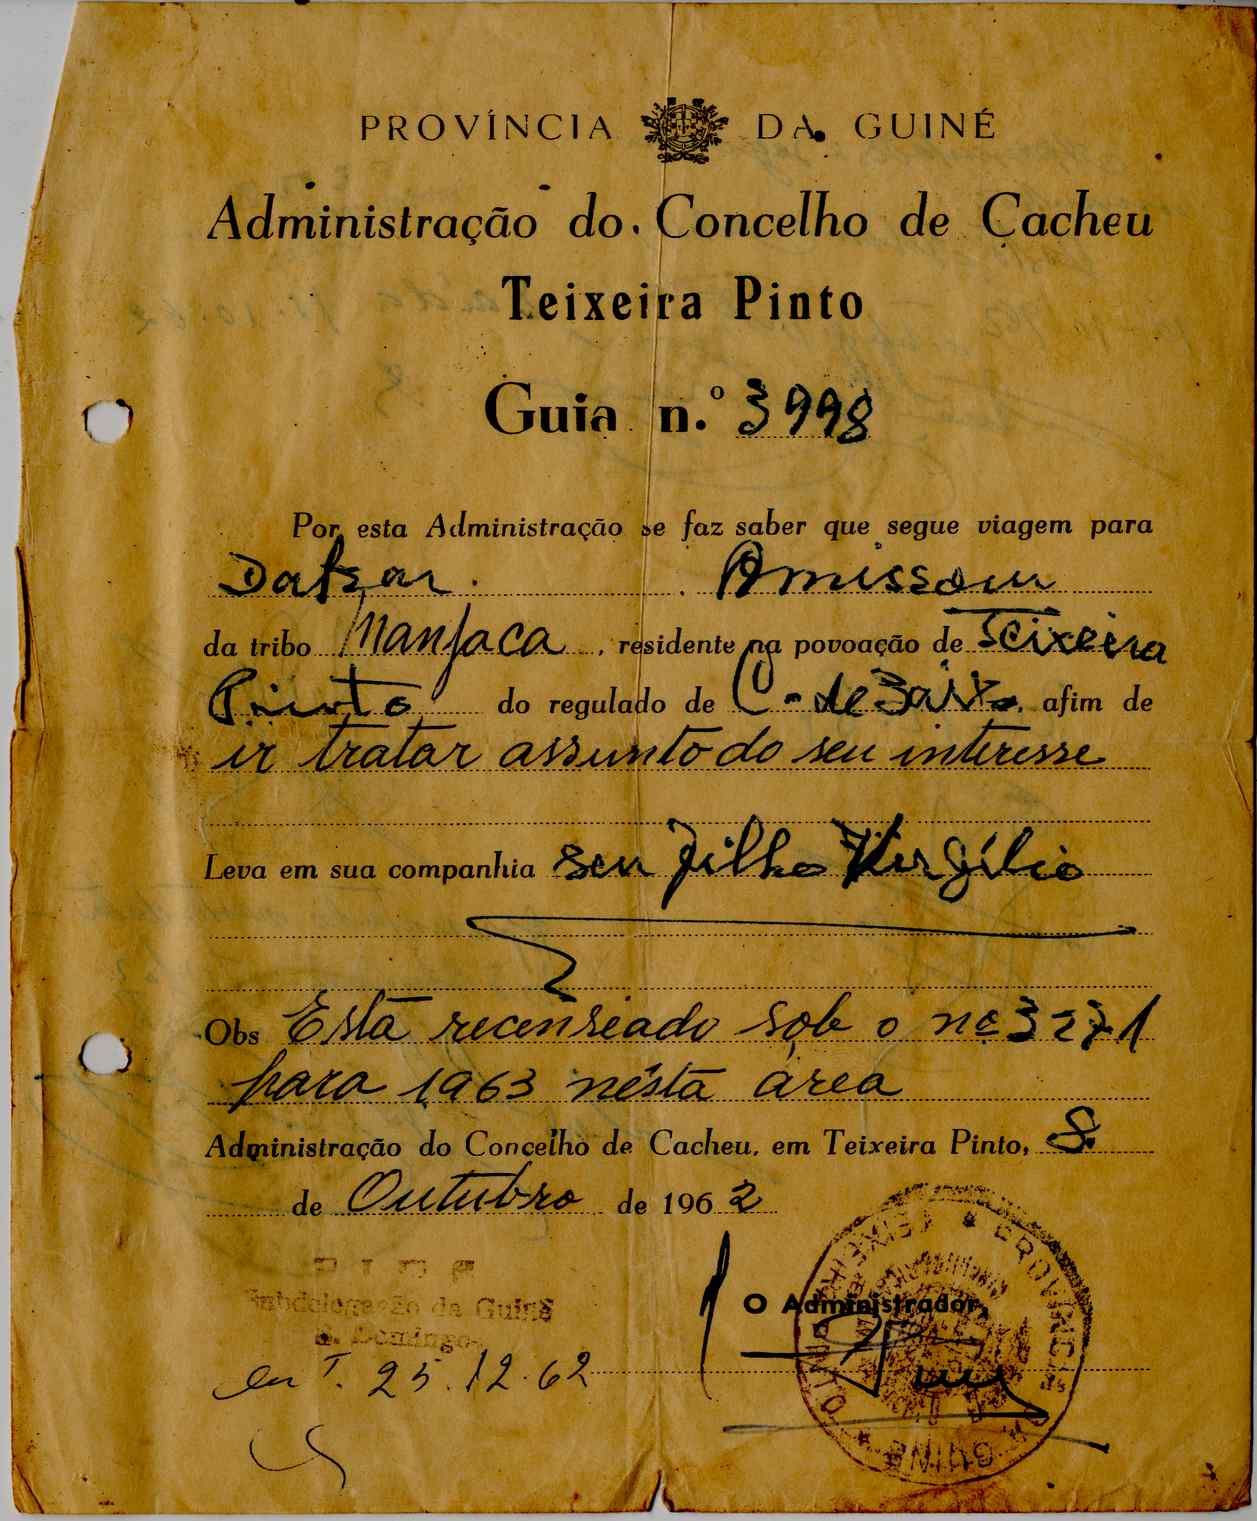 PROVÍNCIA DA GUINÉ
Administração do Concelho de Cacheu
Teixeira Pinto
Guia n.º 3998
Por esta Administração se faz saber que segue viagem para
Daksar. Amissom
da tribo Manjaca, residente na povoação de Teixeira
Pinto do regulado de C. de Baixo, afim de
ir tratar assunto do seu interesse
Leva em sua companhia seu filho Virgílio
Obs Está recenseado sob o nº 3271
para 1963 nésta área
Administração do Concelho de Cacheu, em Teixeira Pinto, 8
de Outubro de 1962
PIDE
Subdelegação da Guiné
S. Domingos
O Administrador,
25.12.62
PROVÍNCIA
GUINÉ
TEIXEIRA PINTO